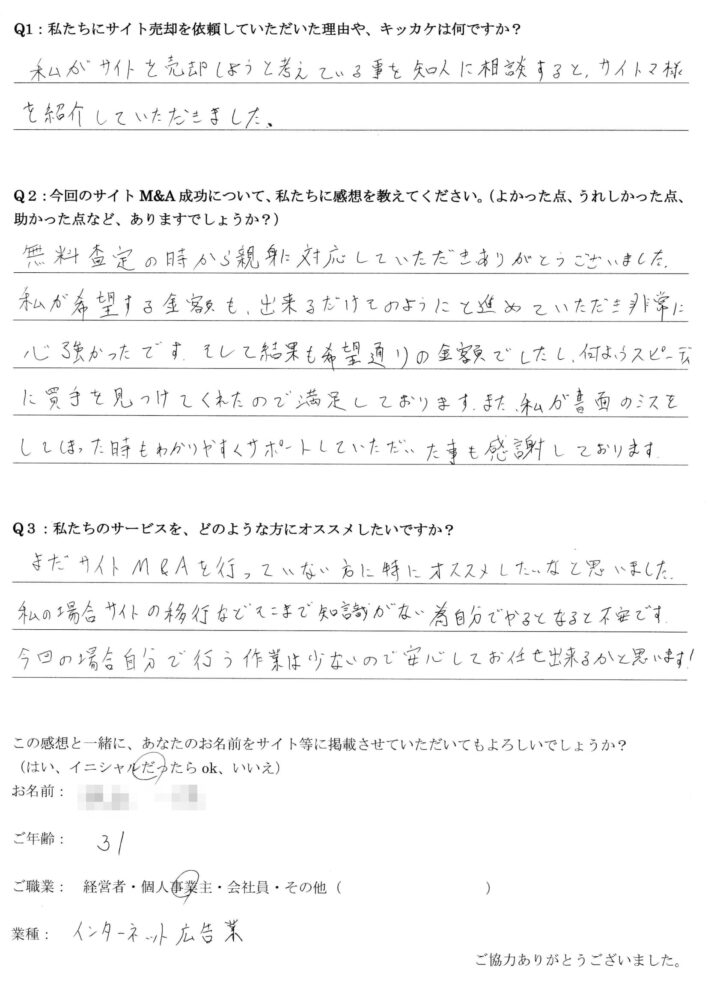 Q1：私たちにサイト売却を依頼していただいた理由や、キッカケは何ですか？
私がサイトを売却しようと考えている事を知人に相談すると、サイトマ様
を紹介していただきました、
Q２：今回のサイト M&A 成功について、私たちに感想を教えてください。（よかった点、うれしかった点、
助かった点など、ありますでしょうか？）
無料査定の時から親身に対応していただきありがとうございました.
私が希望する金額も、出来るだけそのようにと進めていただき非常に
心強かったです. そして結果も希望通りの金額でしたし、何よりスピーディ
に買手を見つけてくれたので満足しております. また、私が書面のミスを
してしまった時もわかりやすくサポートしていただいた事も感謝しております.
Q３：私たちのサービスを、どのような方にオススメしたいですか？
まだサイトM&Aを行っていない方に特にオススメしたいなと思いました.
私の場合サイトの移行などそこまで知識がない為自分でやるとなると不安です.
今回の場合自分で行う作業は少ないので安心してお任せ出来るかと思います!
この感想と一緒に、あなたのお名前をサイト等に掲載させていただいてもよろしいでしょうか？
（はい、イニシャルだったら ok、いいえ）
お名前：
ご年齢： 31
ご職業： 経営者・個人事業主・会社員・その他（ ）
業種： インターネット広告業
ご協力ありがとうございました。